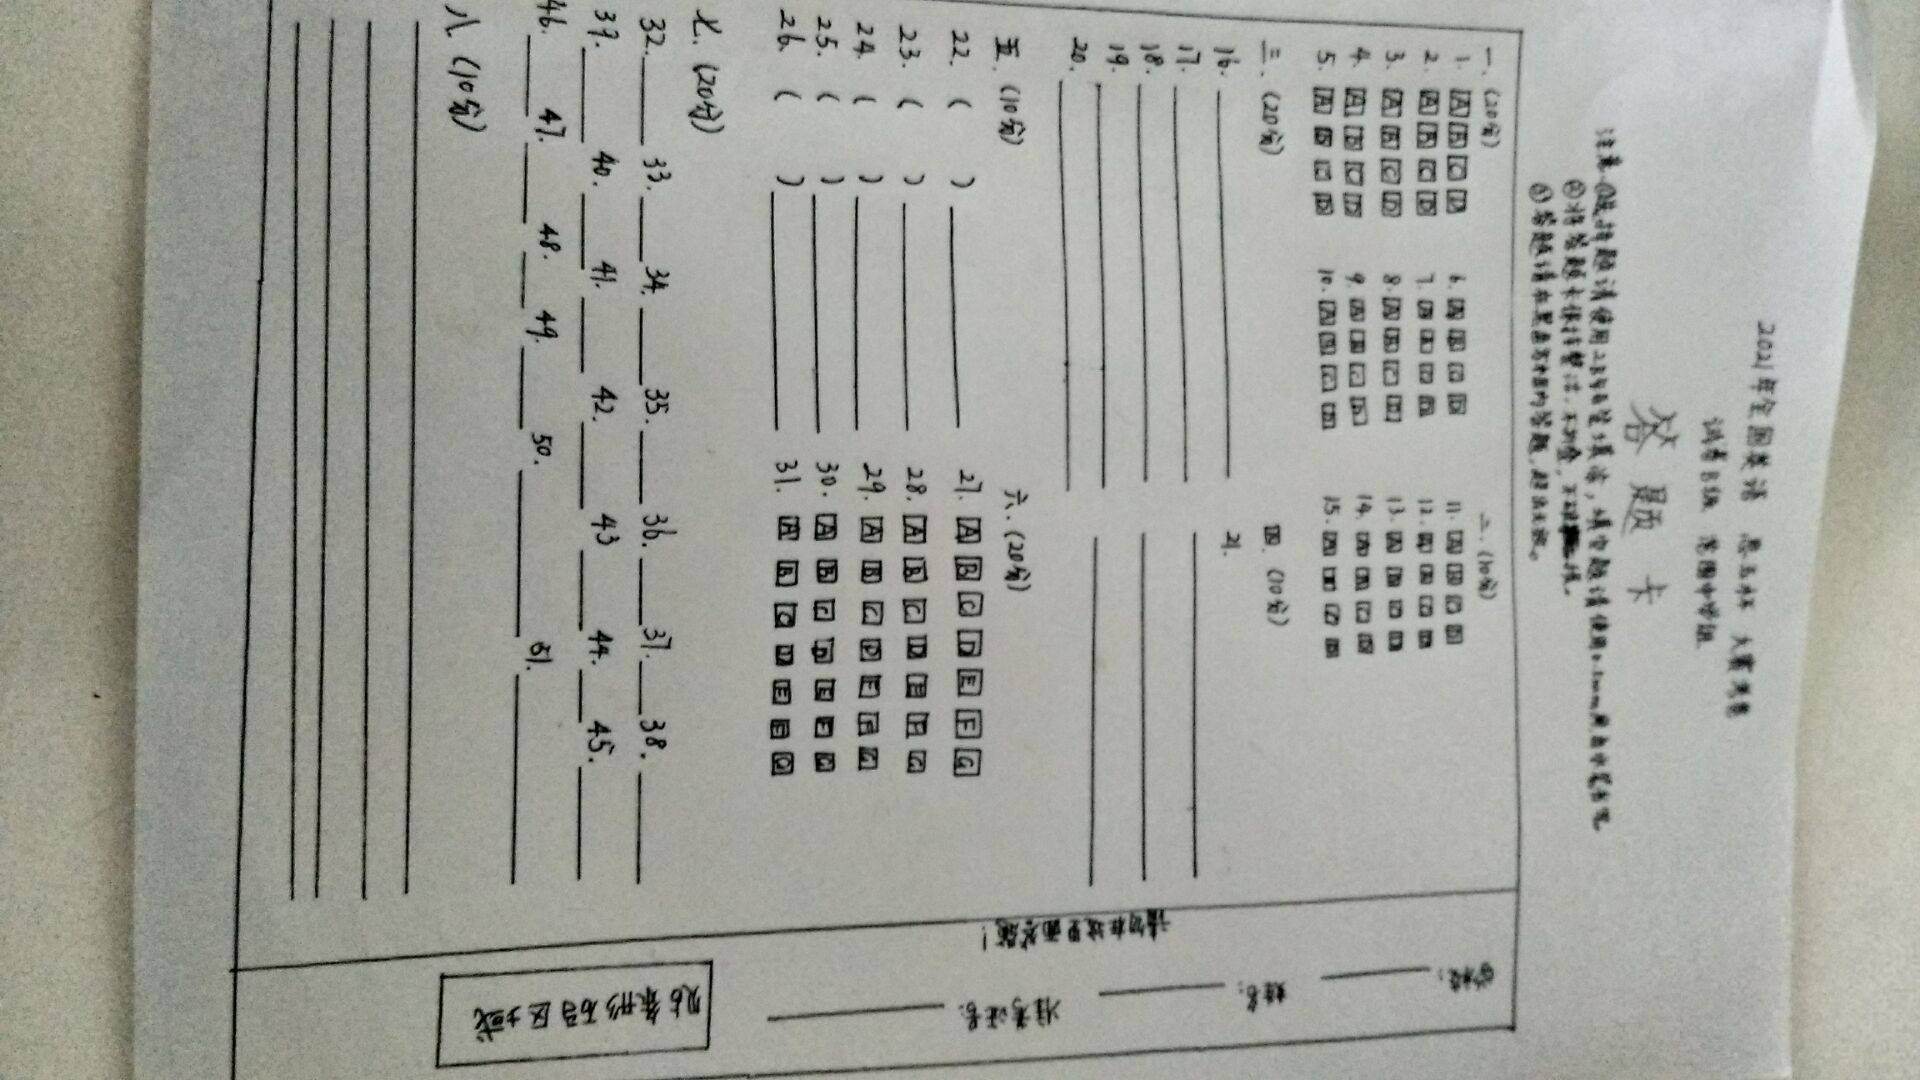 2021年全国英语 思五杯 大赛决卷
试卷B级 范围中学组
答题卡
注意 ①选择题请使用2B铅笔填涂，填空题请使用0.5mm黑色中笔书写
②将答题卡保持整洁，不折叠，不破损。
③答题请在黑色方框内答题，超出无效。
一、(20分)
1. [A] [B] [C] [D]
2. [A] [B] [C] [D]
3. [A] [B] [C] [D]
4. [A] [B] [C] [D]
5. [A] [B] [C] [D]
6. [A] [B] [C] [D]
7. [A] [B] [C] [D]
8. [A] [B] [C] [D]
9. [A] [B] [C] [D]
10. [A] [B] [C] [D]
二、(10分)
11. [A] [B] [C] [D]
12. [A] [B] [C] [D]
13. [A] [B] [C] [D]
14. [A] [B] [C] [D]
15. [A] [B] [C] [D]
三、(20分)
16.
17.
18.
19.
20.
四、(10分)
21.
五、(10分)
22. ( )
23. ( )
24. ( )
25. ( )
26. ( )
六、(20分)
27. [A] [B] [C] [D] [E] [F] [G]
28. [A] [B] [C] [D] [E] [F] [G]
29. [A] [B] [C] [D] [E] [F] [G]
30. [A] [B] [C] [D] [E] [F] [G]
31. [A] [B] [C] [D] [E] [F] [G]
七、(20分)
32. 33. 34. 35. 36. 37. 38.
39. 40. 41. 42. 43 44. 45.
46. 47. 48. 49. 50. 51.
八、(10分)
请勿在这里面答题！
学校：
姓名：
准考证号：
贴条形码区域